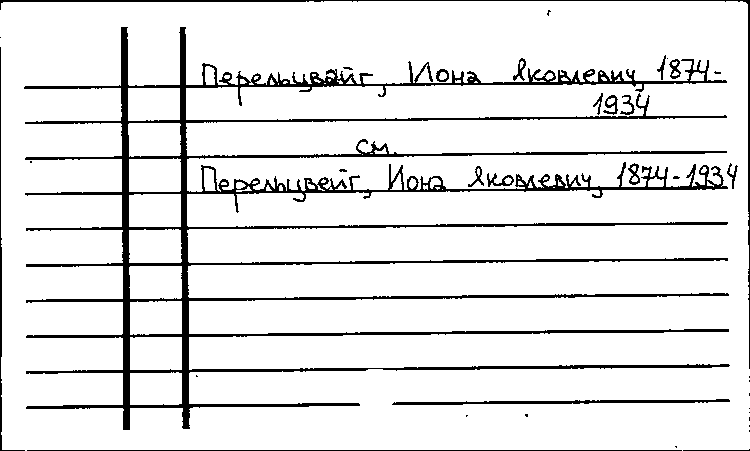 Перельцвайг, Иона Яковлевич, 1874-
1934
см.
Перельцвейг, Иона Яковлевич, 1874-1934